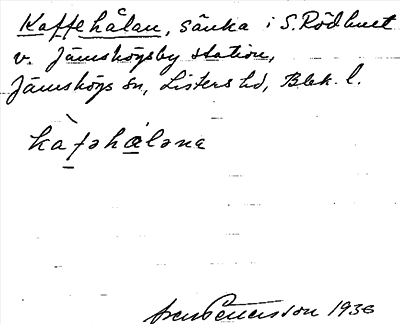 Kaffehålan, sänka i S. Rödhult
v. Jämshögsby station,
Jämshögs sn, Listers hd, Blek. l.
kàfəhǻləna
Pettersson 1936